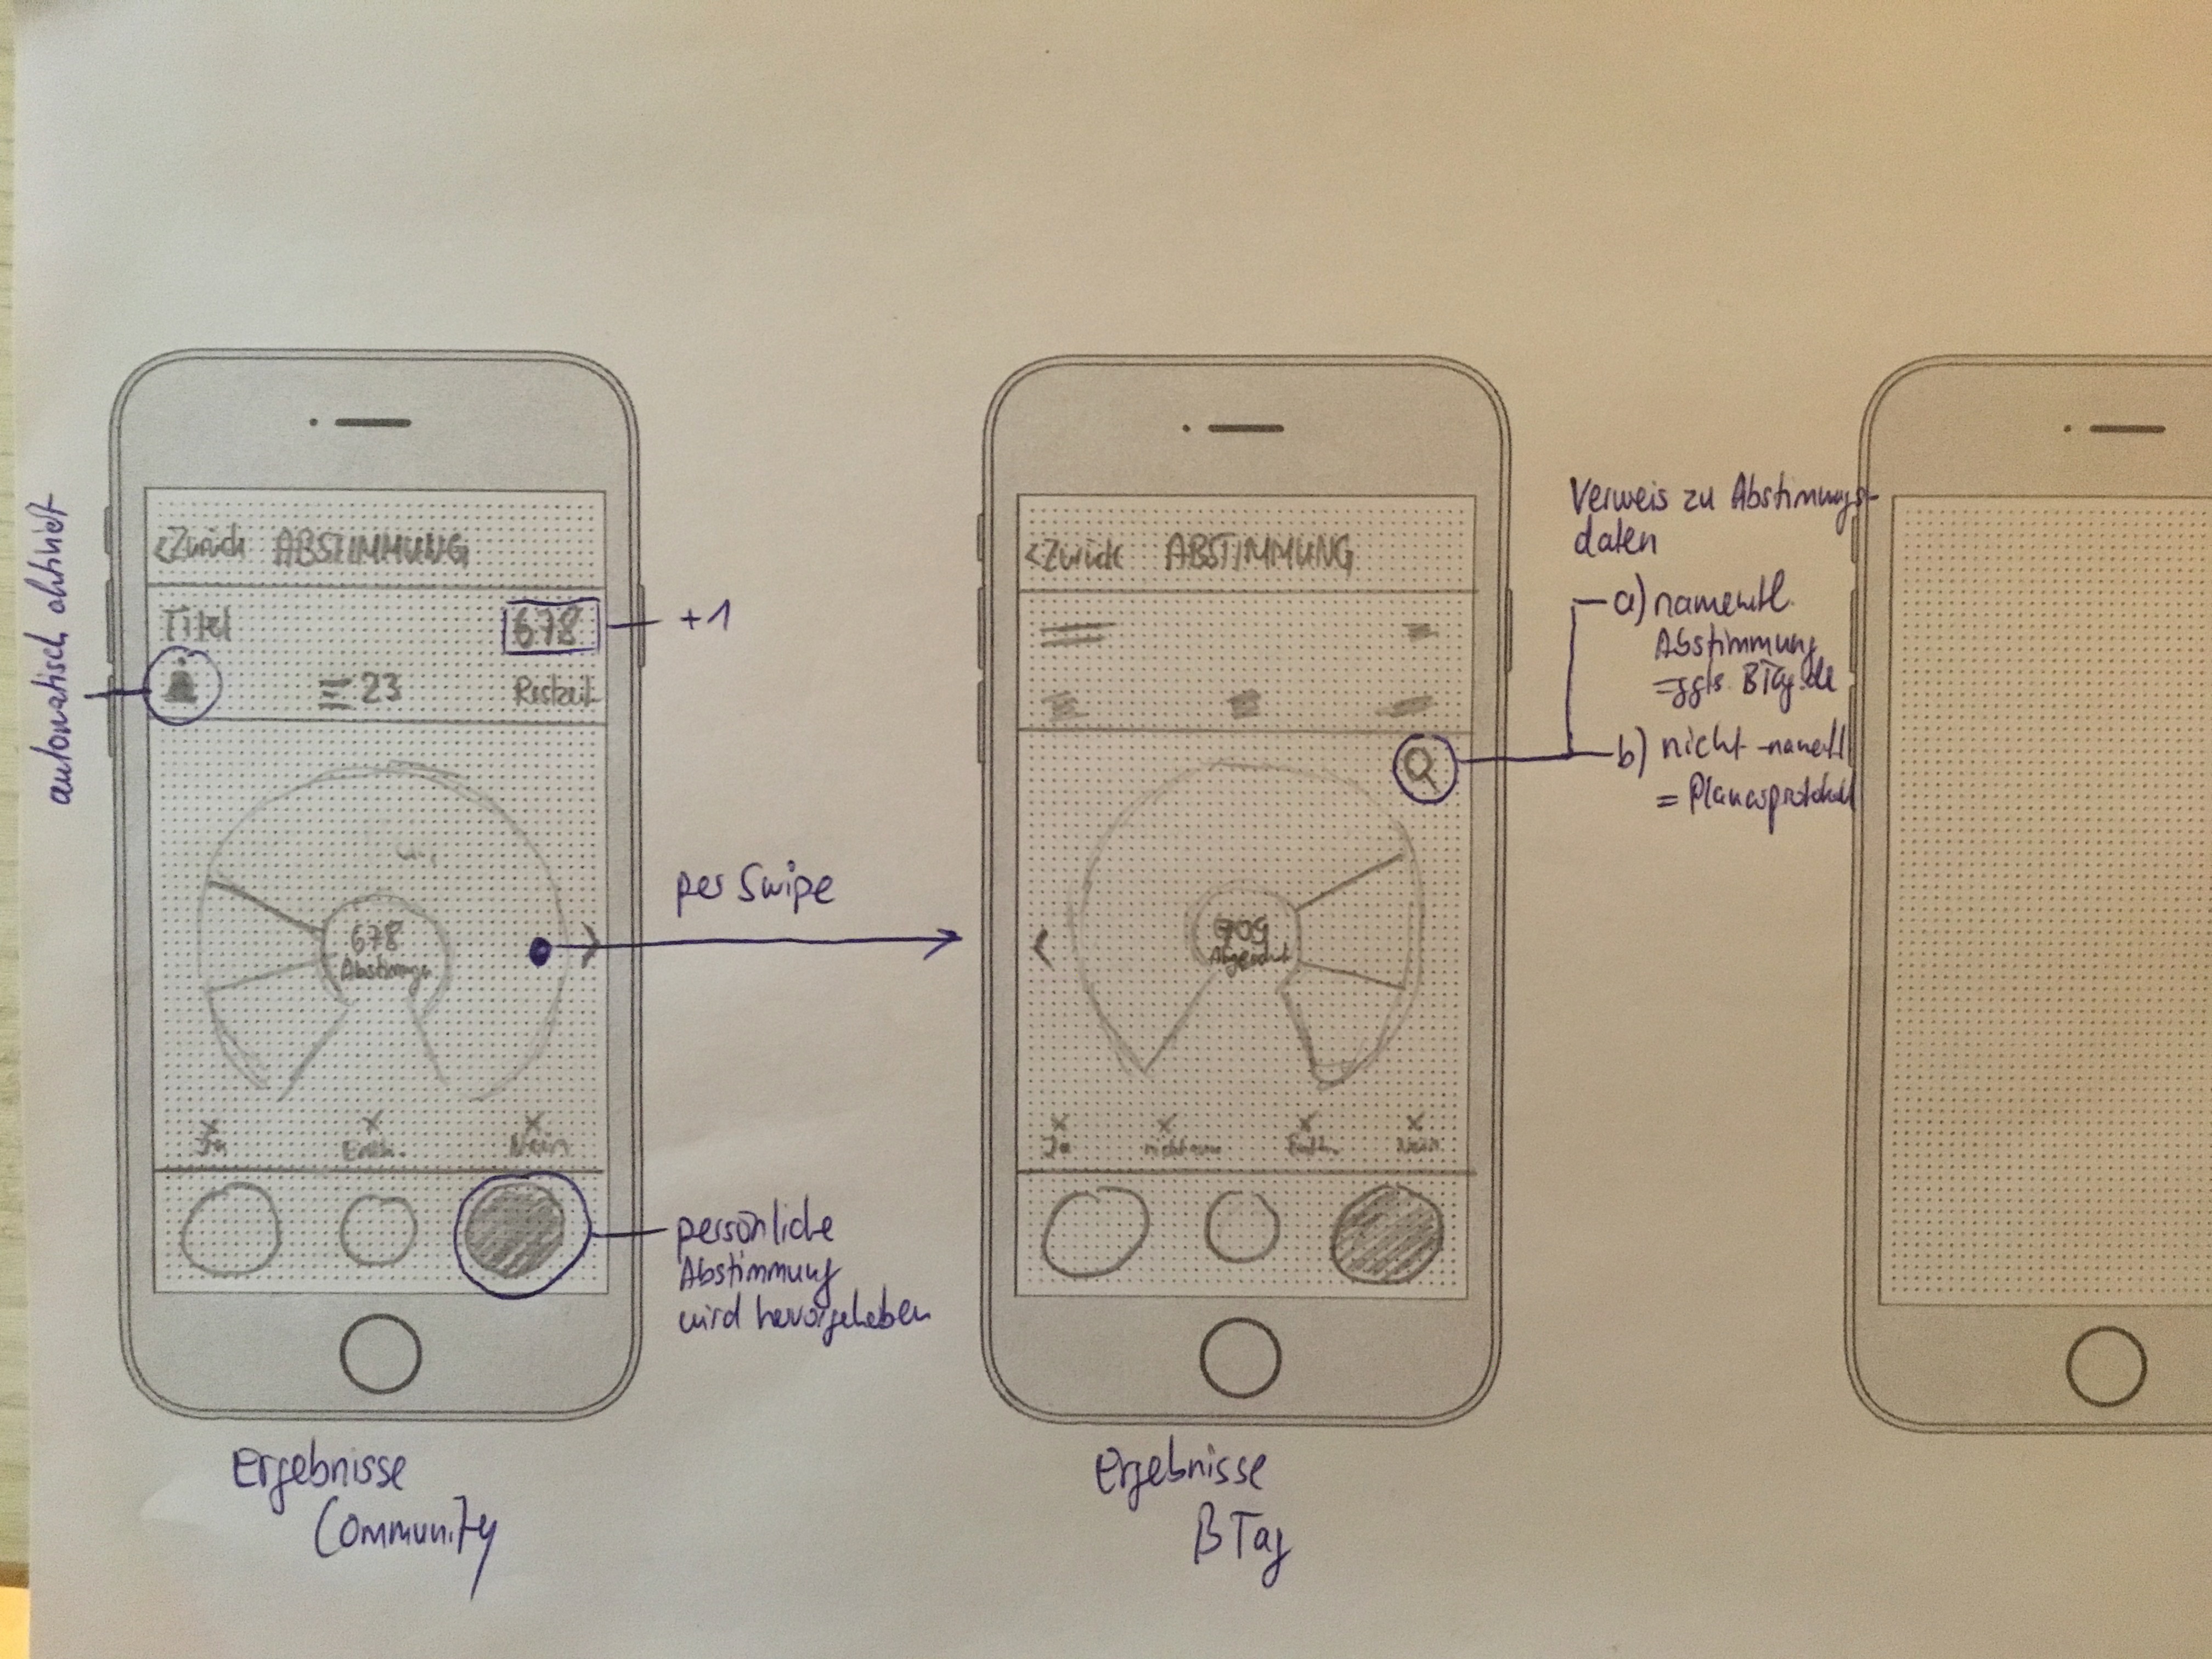 automatisch aktiviert
<Zurück ABSTIMMUNG
Titel 678
23 Restzeit
+1
678
Abstimmungen
Ja Enth. Nein
per Swipe
persönliche
Abstimmung
wird hervorgehoben
Ergebnisse
Community
<Zurück ABSTIMMUNG
709
Ja Enth. Nein
Verweis zu Abstimmungs-
daten
a) namentl.
Abstimmung
BTag.de
b) nicht-namentl
= Plenarprotokoll
Ergebnisse
BTag